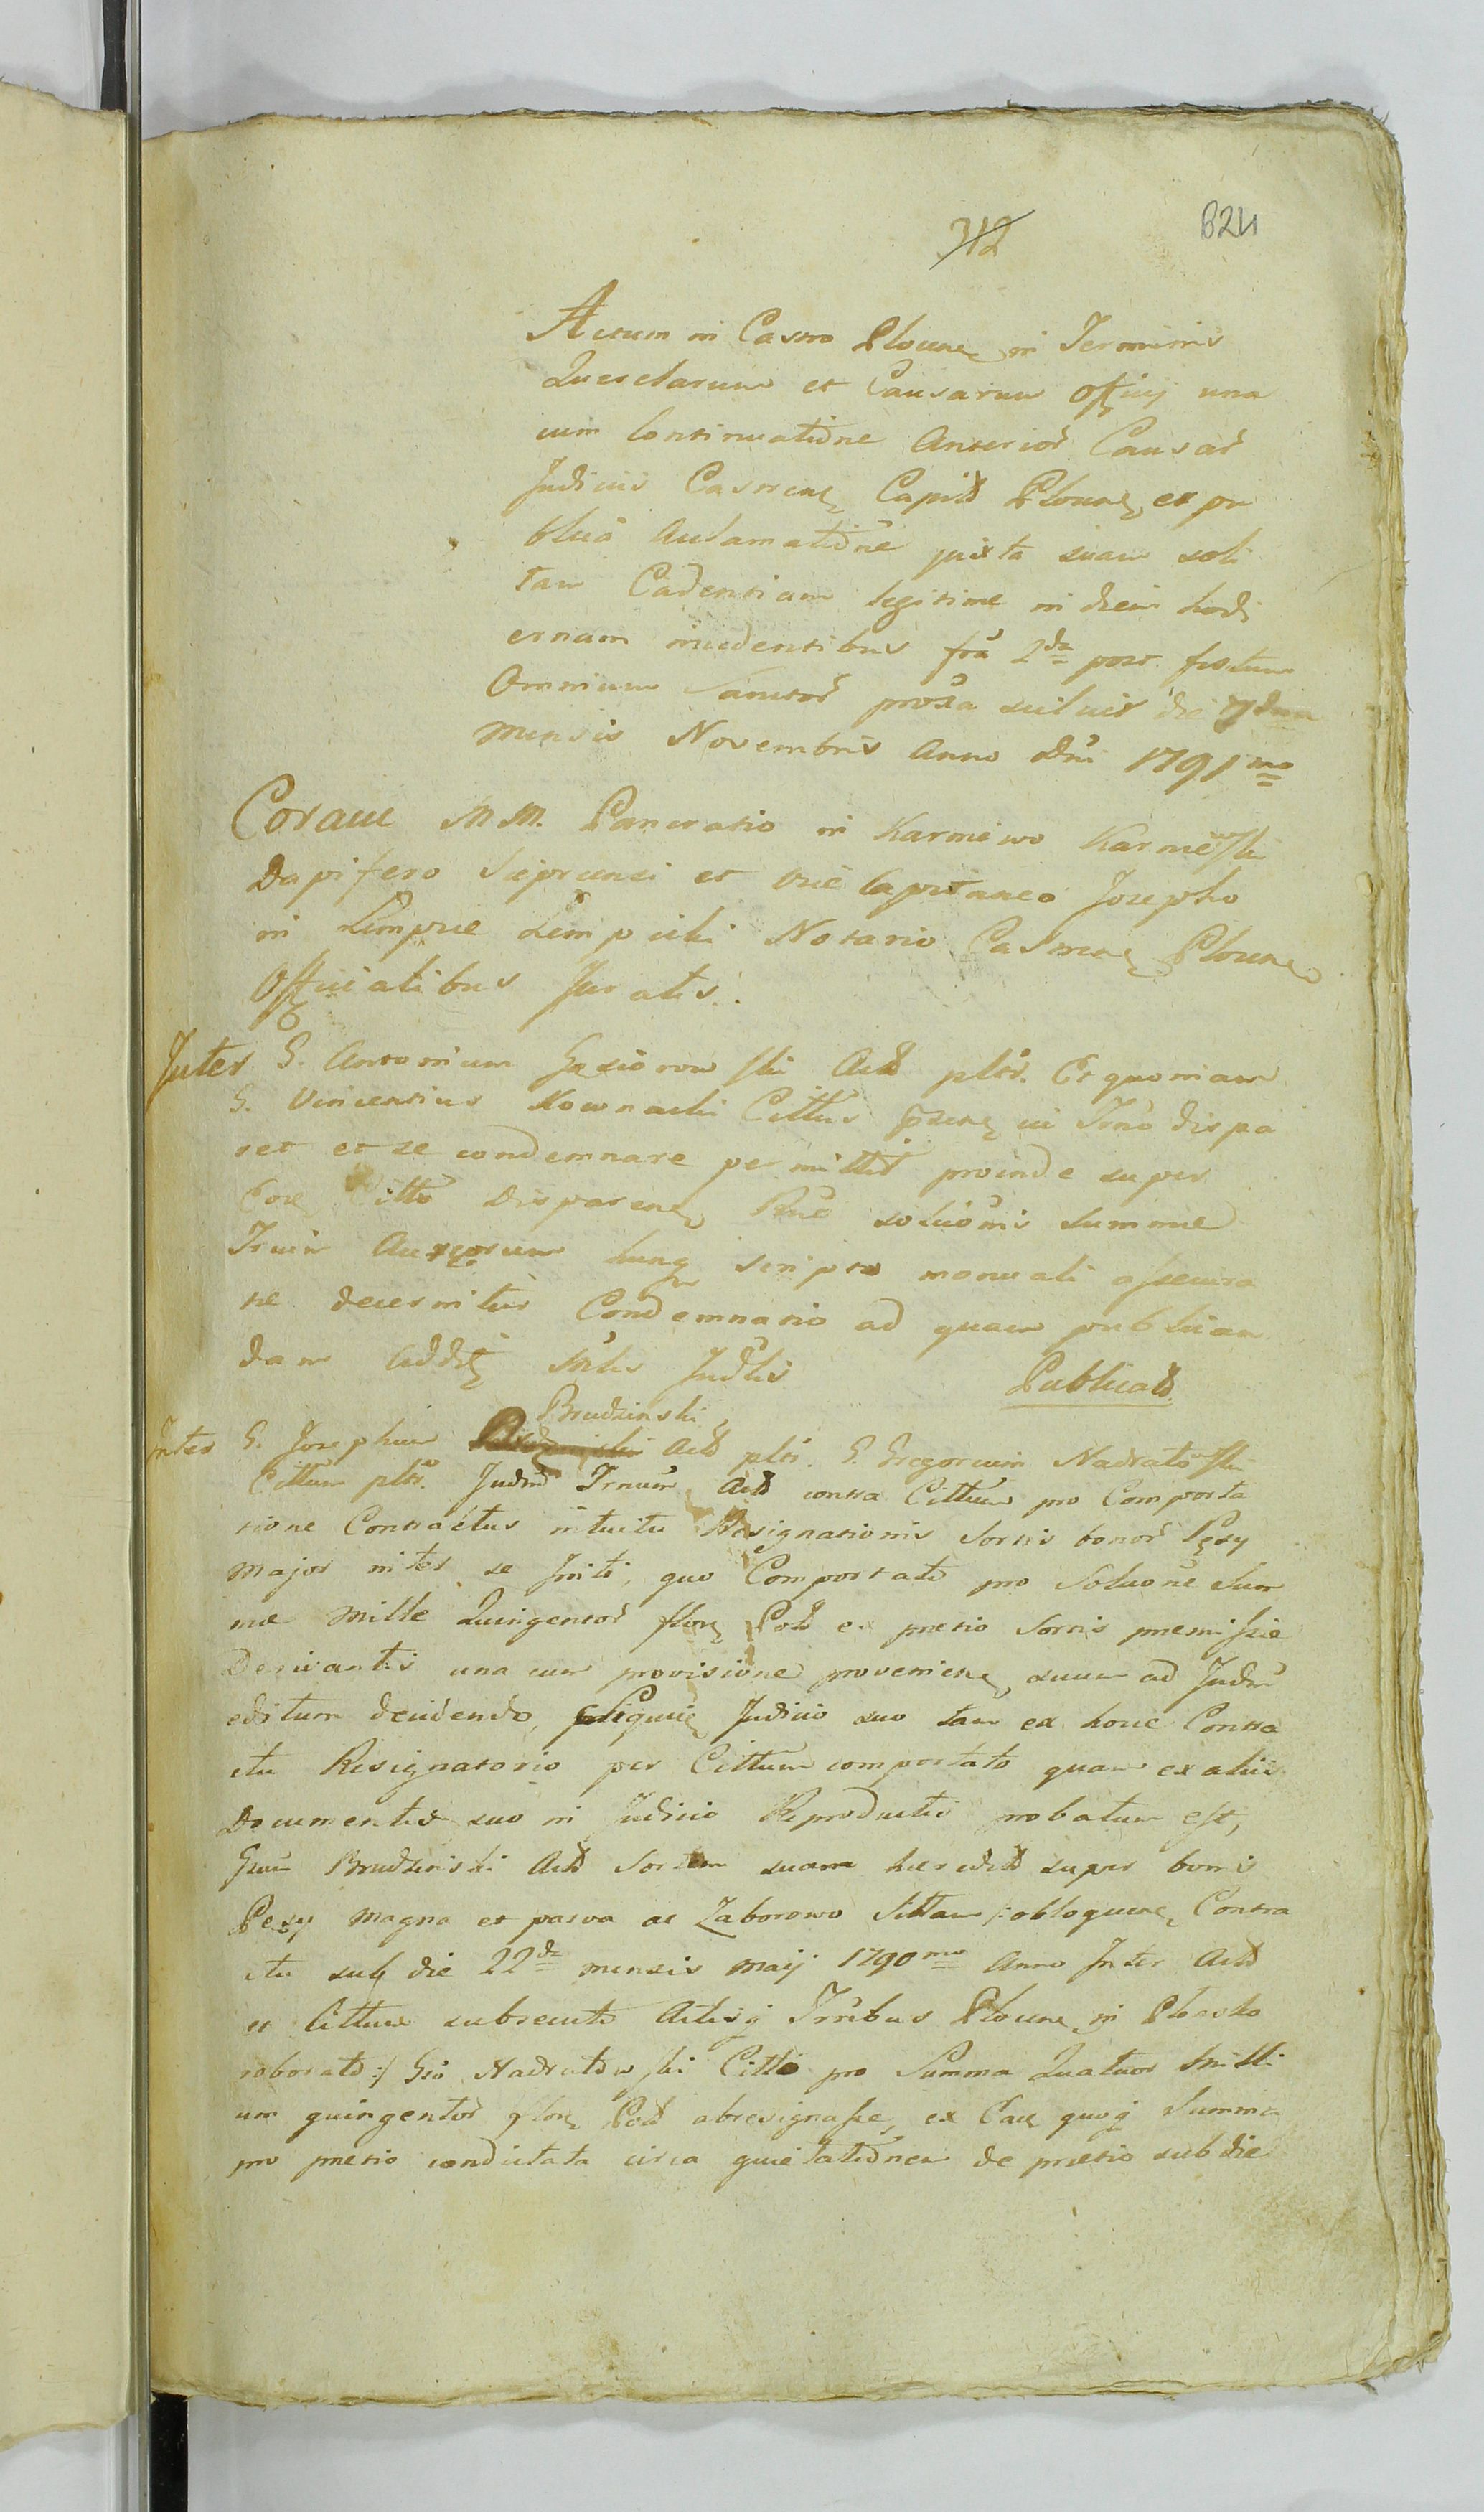 312 624
Actum in Castro Plocen in Terminis
Querelarum et Causarum Officij una
cum Continuatione Anterior Causar
Judiciis Castren Capit Plocen, ex pu
blica Aulamatione juxta suam soli
tam Cadentiam legitime in diem hodi
ernam incidentibus fra 2da post festum
Omnium Sanctor proxa scilicet die 7dma
Mensis Novembris Anno Dni 1791mo
Coram MM. Pancratio in Karniewo Karniewski
Dapifero Sieprcensi et Vice Capitaneo Josepho
in Lempice Lempicki Notario Castren Plocen
Officialibus Juratis.
Inter G. Antonium Gąsiorowski Act pltr. Et quoniam
G. Vincentius Kownacki Cittus prsens in Trno dispa
ret et se condemnare permittit proinde super
Eod Citto Disparen Rne soluõnis summae
Trium Aureorum hung scripto manuali assecura
tae decernitur Condemnatio ad quam publican
dam Addit Mtis Judlis
Publicat.
Brudzinski
Inter G. Josephum Act pltr. G. Gregorium Nadratowski
Cittum pltr. Judm Trnum, Act contra Cittum pro Comporta
tione Contractus intuitu Resignationis Sortis bonor Pęsy
Major inter se Initi, quo Comportato pro Soluõne Sum
mae Mille Quingentor flor Pol ex pretio Sortis praemissae
Derivantis una cum provisione provenien, suum ad Judm
editum decidendo, Judicio suo tam ex hocce Contra
ctu Resignatorio per Cittum comportato quam ex aliis
Documentis suo in Judicio Reproductis probatum est,
Gsum Brudzinski Act Sortem suam haeredit super bonis
Pęsy Magna et parva ac Zaborowo Sittam /: obloquen Contra
ctu sub die 22da mensis Maij 1790mo Anno Inter Act
et Cittum subsecuto Actisq Trribus Plocen in Plocko
roborato :/ Gso Nadratowski Citto pro Summa Quatuor Milli
um quingentor flor Pol abresignasse, ex Eaq quoq Summa
pro pretio condictata circa quietationem de pretio sub die